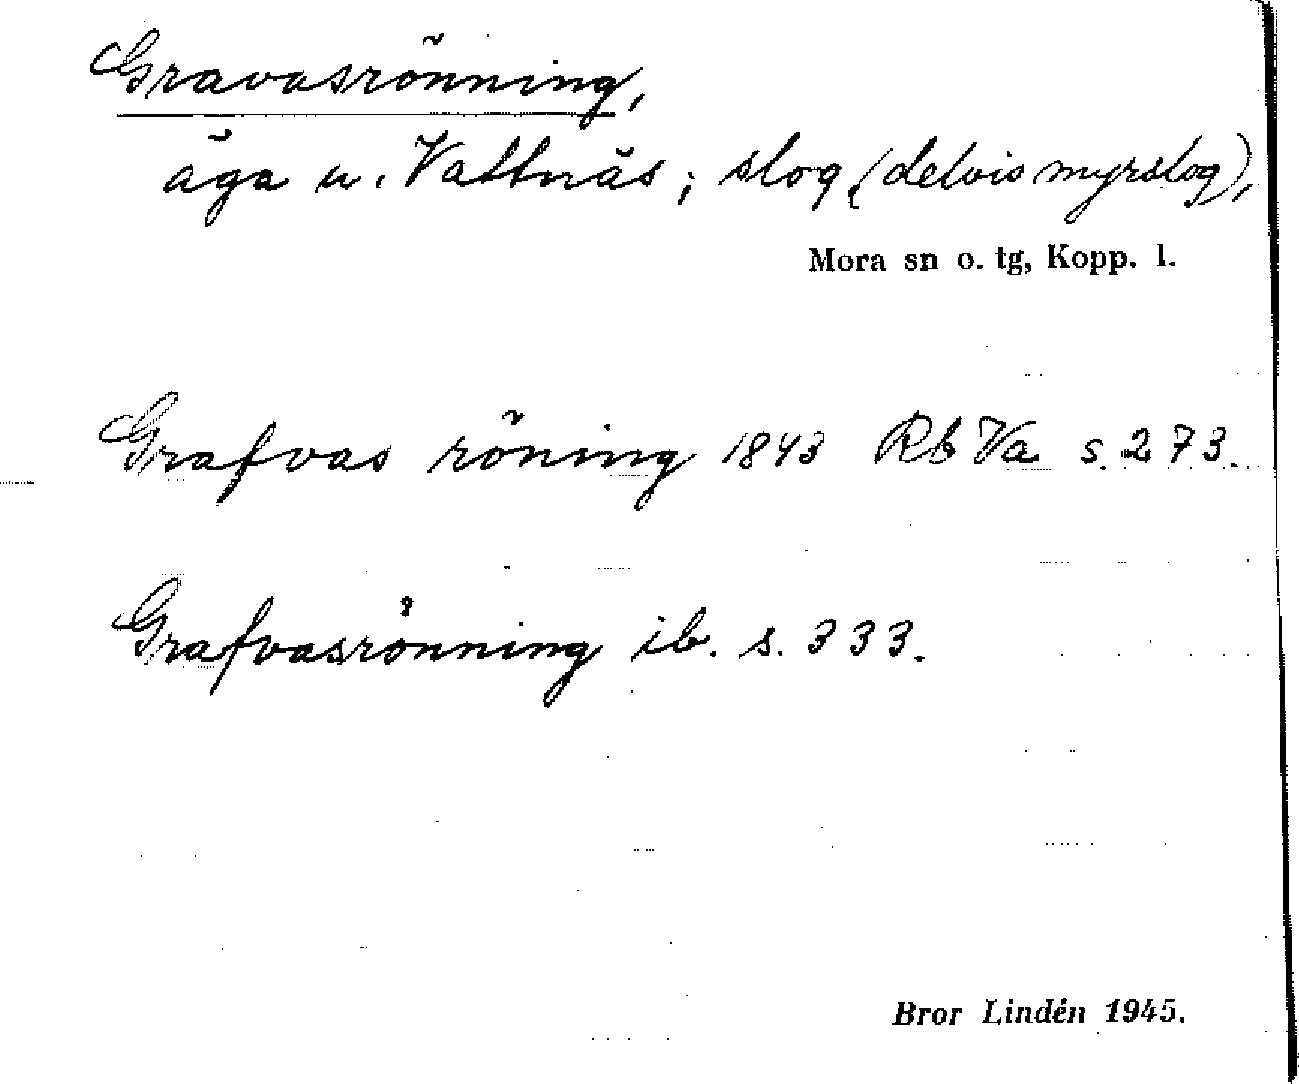 Gravasrönning,
äga u. Vattnäs; slog (delvis myrslog),
Mora sn o. tg, Kopp. l.
Grafvas röning 1843 Rb Va s. 273.
Grafvasrönning ib. s. 333.
Bror Lindén 1945.